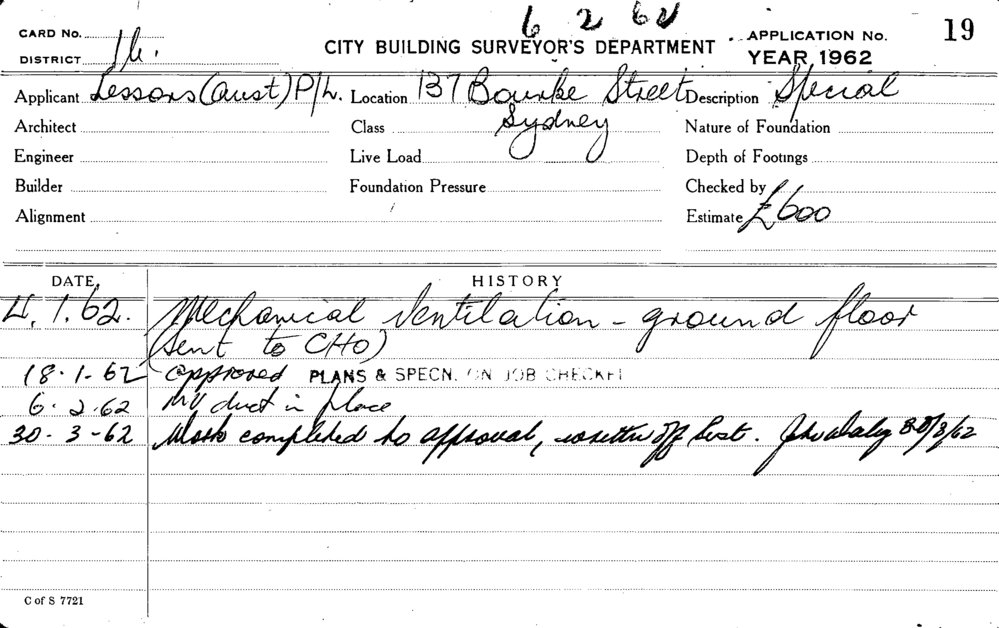 6 2 62
CARD No.
CITY BUILDING SURVEYOR'S DEPARTMENT
APPLICATION No. 19
DISTRICT
YEAR 1962
Applicant Lessons (Aust) P/L. Location 137 Bourke Street Description Special
Sydney
Architect Class Nature of Foundation
Engineer Live Load Depth of Footings
Builder Foundation Pressure Checked by
Alignment Estimate £600
DATE, HISTORY
4.1.62. Mechanical Ventilation - ground floor
(sent to CHO)
18.1.62 approved PLANS & SPECN. ON JOB CHECKED
6.2.62 MV duct in place
30-3-62 Work completed to approval, written off list. 30/3/62
C of S 7721